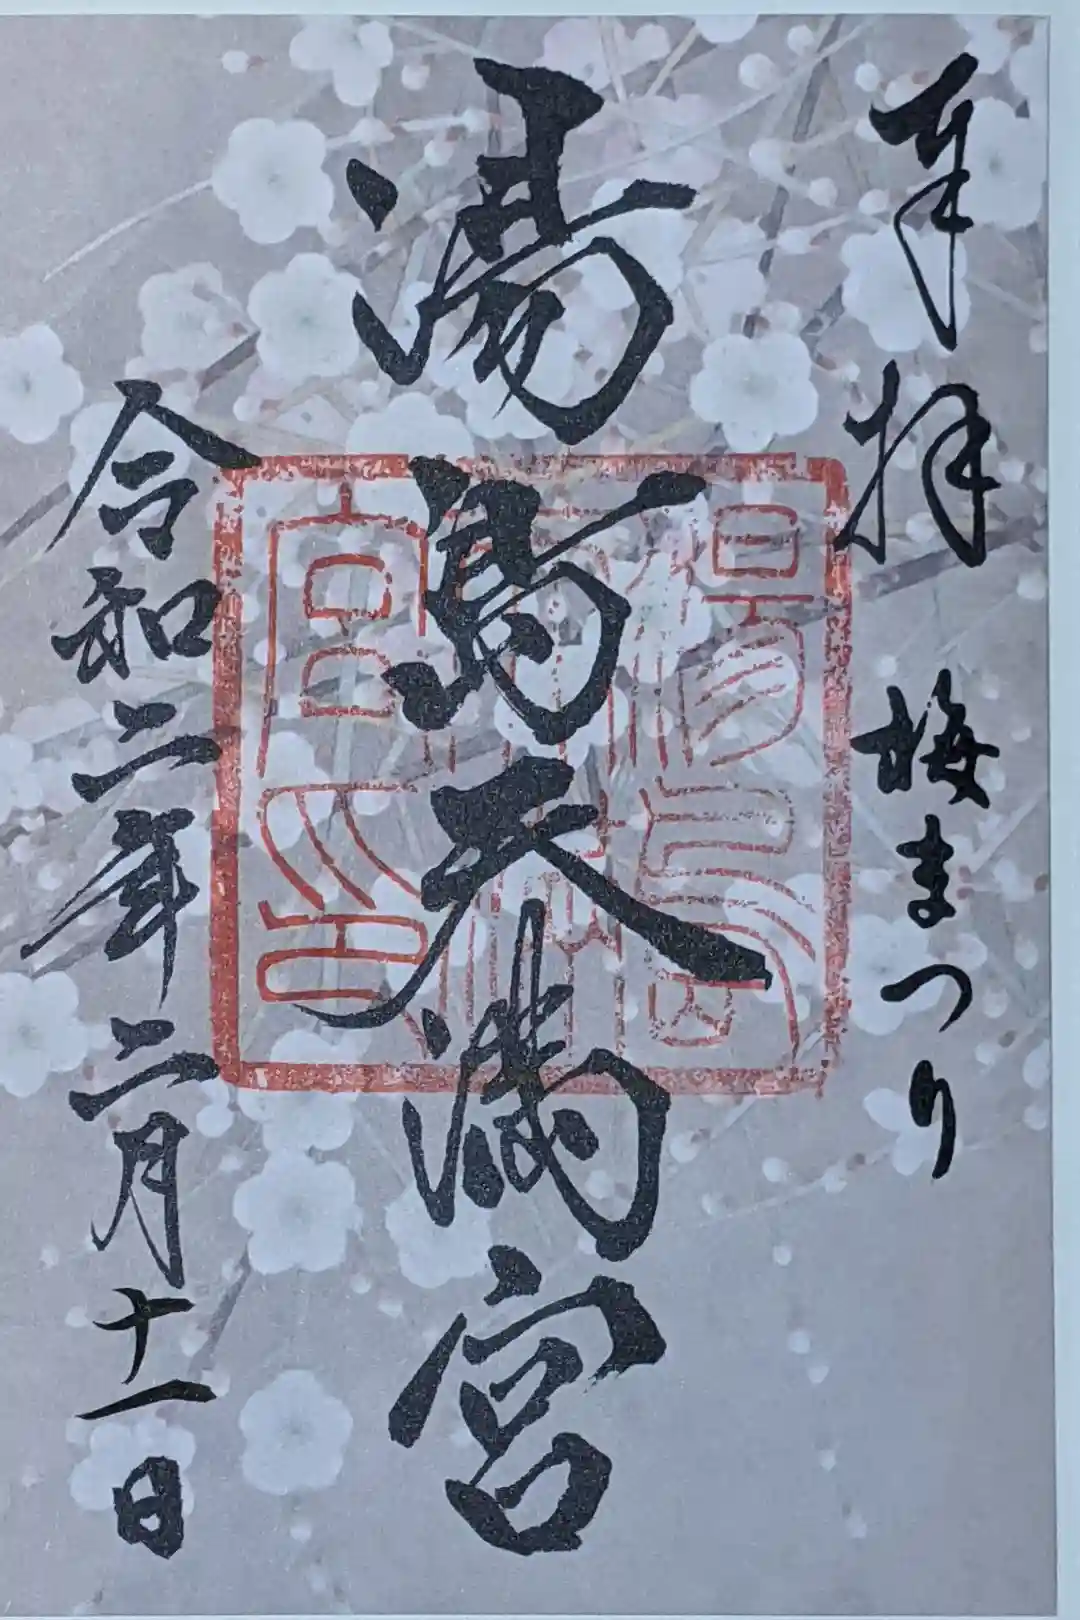 奉拝 梅まつり
湯島天満宮
令和二年二月十一日
湯島神社
宮之印